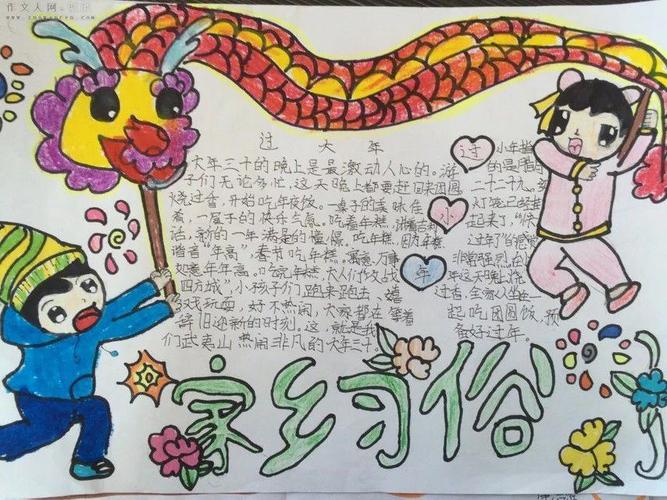 作文人网
www.zuowenren.com
过大年
大年三十的晚上是最激动人心的。游
子们无论多忙,这天晚上都要赶回来团圆
烧过香,开始吃年夜饭。一桌子的美味佳
肴,一屋子的快乐气氛。吃着年糕,
话,新的一年满是的憧憬。吃年糕,因为年糕
谐音“年高”,春节吃年糕。寓意万事
如意年年高。吃完年糕,大人们作文战
四方城”,小孩子们跑来跑去,嬉
戏玩耍,好不热闹,大家都在等着
辞旧迎新的时刻。这,就是我
们武夷山热闹非凡的大年三十。
过
小
年
小年
的是腊月
二十九,
灯笼已经挂
起来了,“快
过年了”的感觉
非常强烈,在小
年这天晚上,烧
过香,全家人坐在一
起吃团圆饭,预
备好过年。
家乡习俗